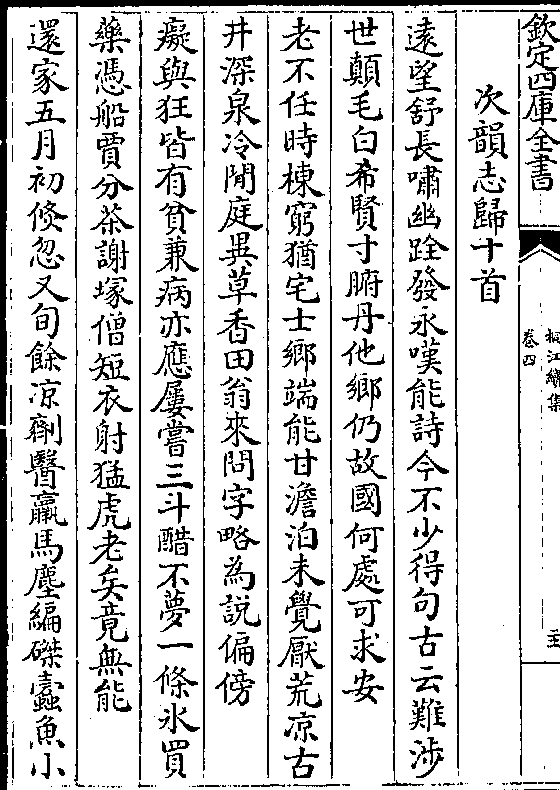 欽定四庫全書
桐江續集
卷四
次韻志歸十首
遠望舒長嘯幽跧發永嘆能詩今不少得句古云難涉
世顛毛白希賢寸腑丹他鄉仍故國何處可求安
老不任時棟窮猶宅士鄉端能甘澹泊未覺厭荒凉古
井深泉冷閒庭異草香田翁來問字略為說偏傍
癡與狂皆有貧兼病亦應屢嘗三斗醋不夢一條氷買
藥憑船賈分茶謝塚僧短衣射猛虎老矣竟無能
還家五月初倐忽又旬餘凉劑醫羸馬塵編磔蠹魚小